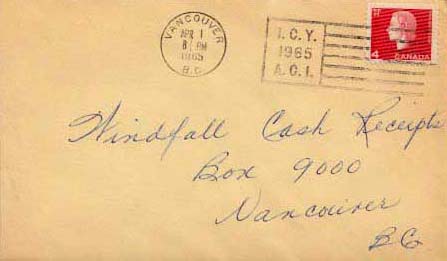 VANCOUVER
APR 1
8 PM
1965
B.C.
I.C.Y.
1965
A.C.I.
4
CANADA
Windfall Cash Receipts
Box 9000
Vancouver
BC